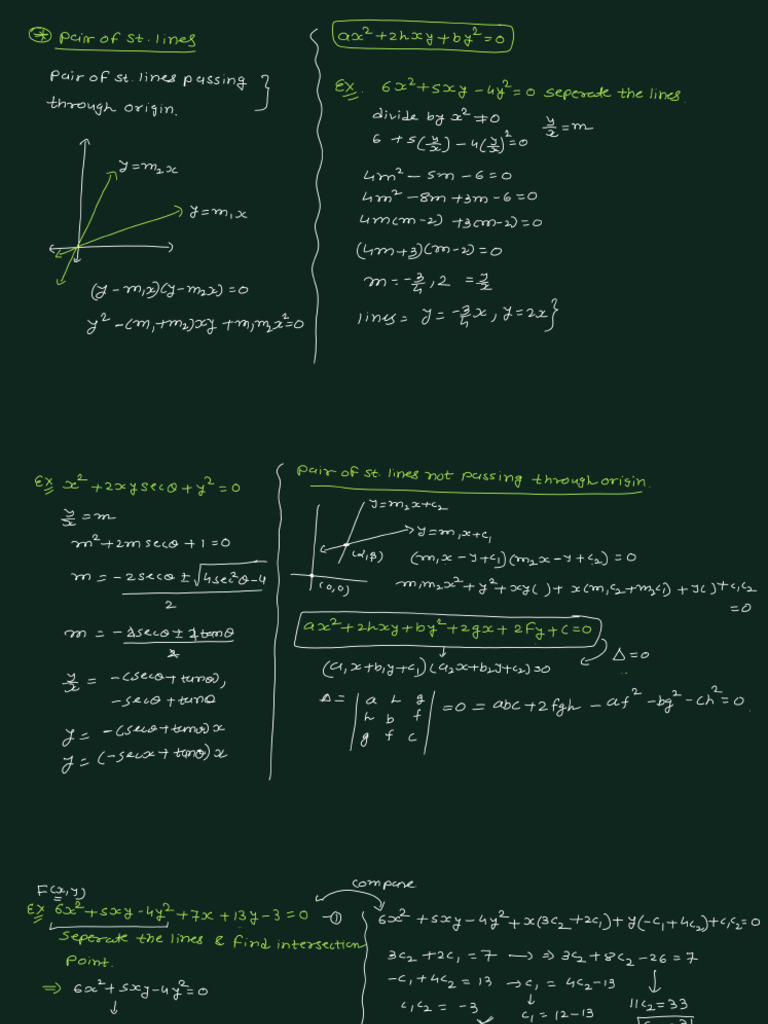 * Pair of st. lines
Pair of st. lines passing
through origin.
y=m₂x
y=m₁x
(y-m₁x)(y-m₂x)=0
y²-(m₁+m₂)xy+m₁m₂x²=0
ax²+2hxy+by²=0
EX. 6x²+5xy-4y²=0 seperate the lines.
divide by x²≠0 y/x=m
6+5(y/x)-4(y/x)²=0
4m²-5m-6=0
4m²-8m+3m-6=0
4m(m-2)+3(m-2)=0
(4m+3)(m-2)=0
m=-3/4,2 =y/x
lines= y=-3/4x, y=2x}
EX x²+2xysecθ+y²=0
y/x=m
m²+2msecθ+1=0
m=-2secθ±√4sec²θ-4
2
m=-2secθ±2tanθ
2
y/x= -(secθ+tanθ),
-secθ+tanθ
y= -(secθ+tanθ)x
y= (-secx+tanθ)x
Pair of st. lines not passing through origin.
y=m₂x+c₂
y=m₁x+c₁
(α,β)
(0,0)
(m₁x-y+c₁)(m₂x-y+c₂)=0
m₁m₂x²+y²+xy( )+x(m₁c₂+m₂c₁)+y( )+c₁c₂
=0
ax²+2hxy+by²+2gx+2Fy+c=0
Δ=0
(a₁x+b₁y+c₁)(a₂x+b₂y+c₂)=0
Δ= | a h g |
| h b f | =0=abc+2fgh-af²-bg²-ch²=0
| g f c |
F(x,y)
EX 6x²+5xy-4y²+7x+13y-3=0 -①
seperate the lines & find intersection
point.
⇒ 6x²+5xy-4y²=0
compare
6x²+5xy-4y²+x(3c₂+2c₁)+y(-c₁+4c₂)+c₁c₂=0
3c₂+2c₁=7 → ⇒ 3c₂+8c₂-26=7
-c₁+4c₂=13 → c₁=4c₂-13
11c₂=33
c₁c₂=-3
c₁=12-13